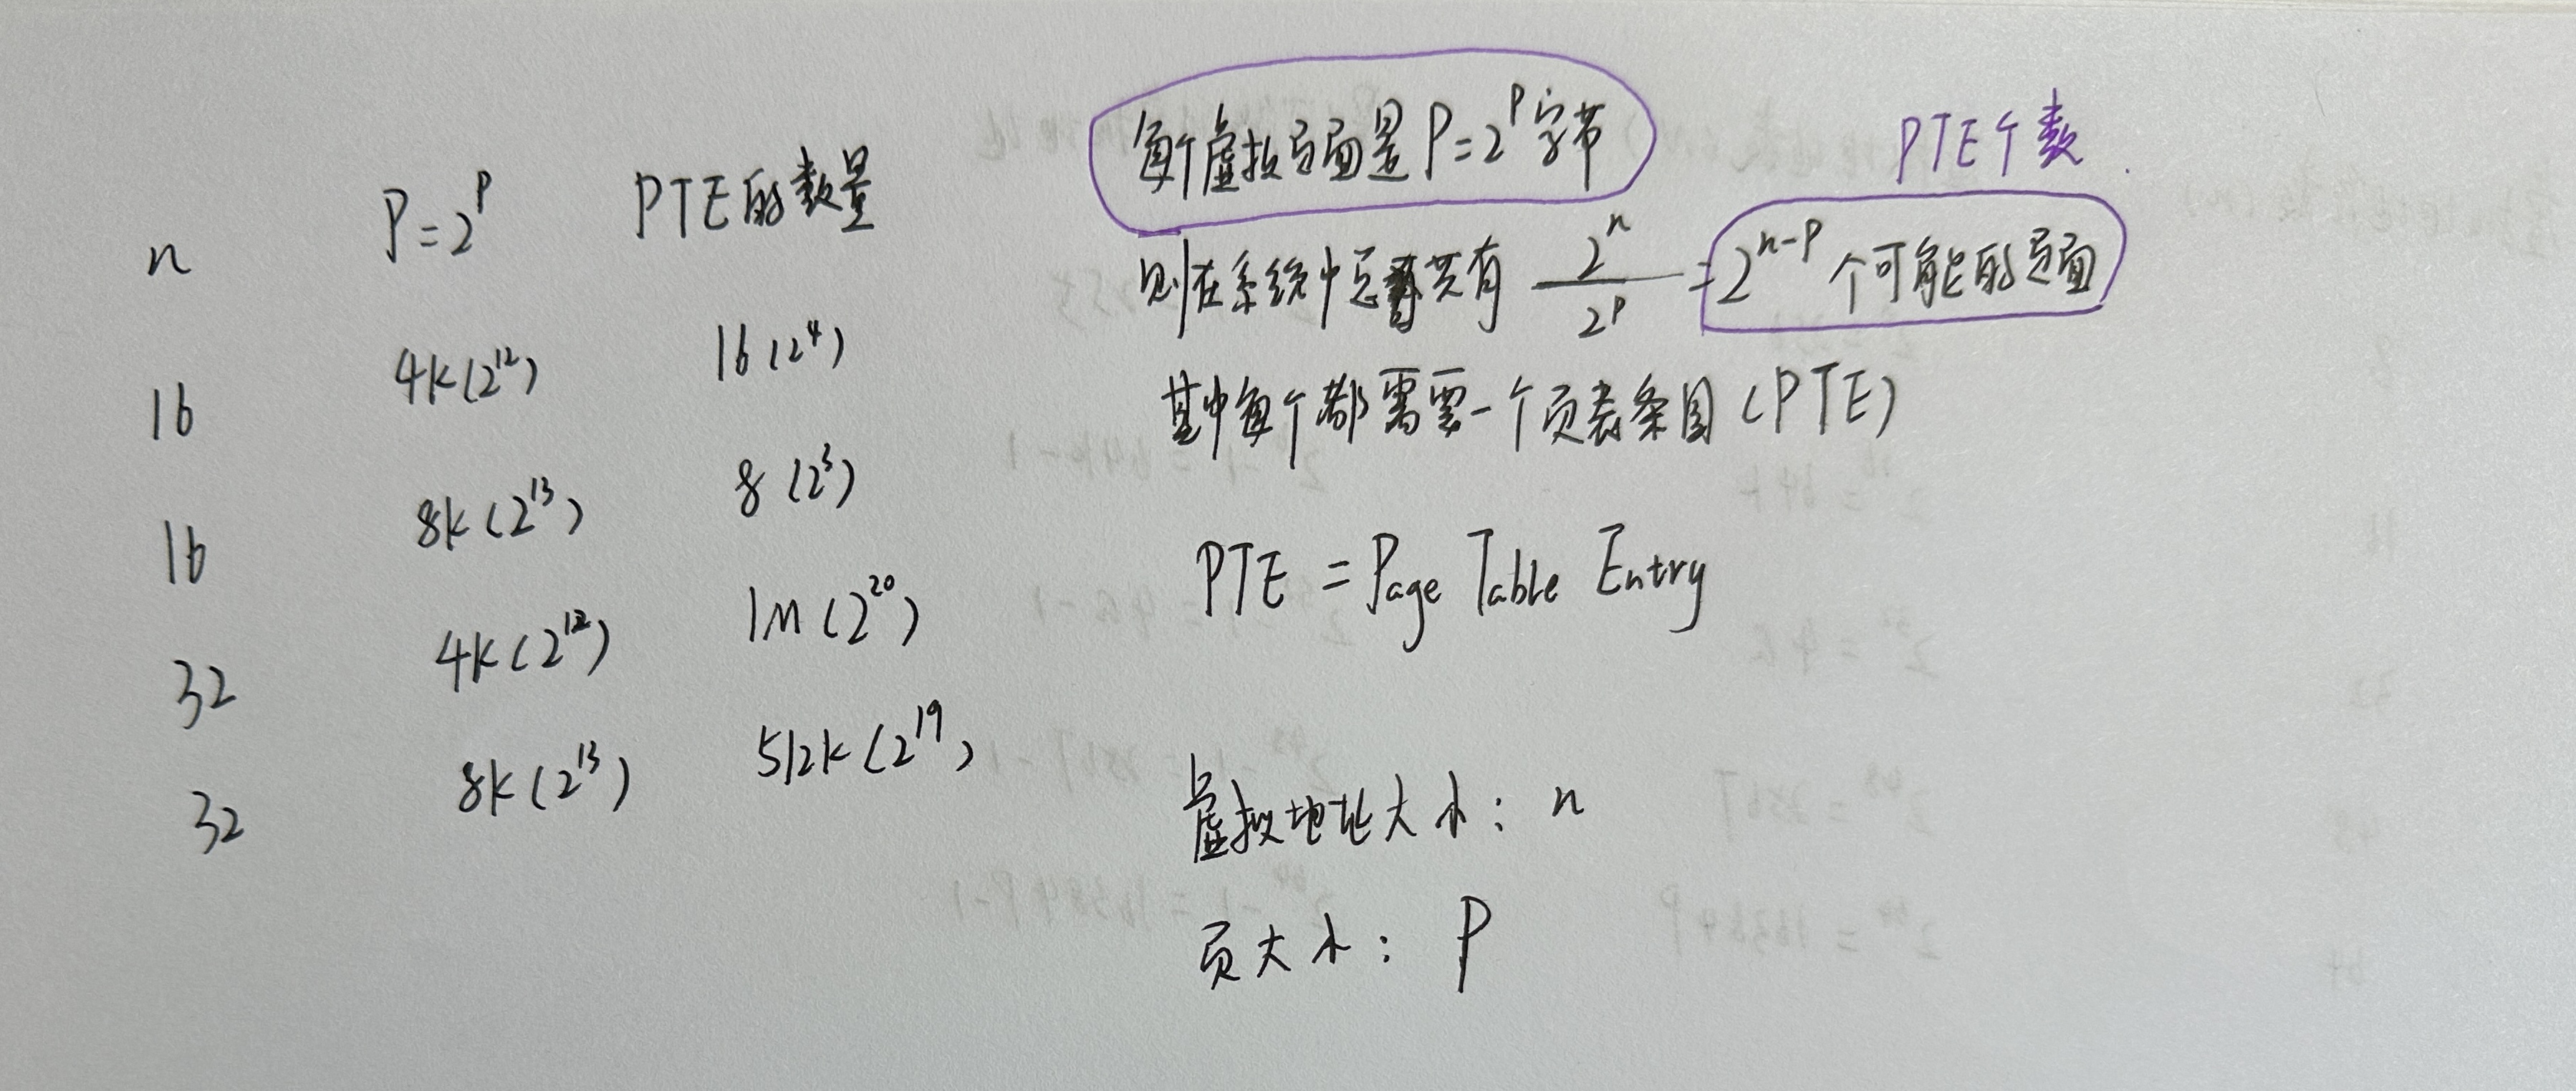 n P=2^p PTE的数量
16 4k(2^12) 16(2^4)
16 8k(2^13) 8(2^3)
32 4k(2^12) 1M(2^20)
32 8k(2^13) 512k(2^19)
每个虚拟页面是P=2^p字节
PTE个数
则在系统中总共有 2^n/2^p = 2^n-p 个可能的页面
其中每个都需要一个页表条目(PTE)
PTE = Page Table Entry
虚拟地址大小: n
页大小: P